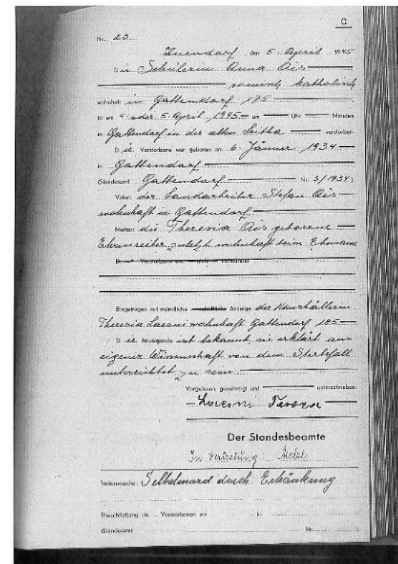 C
Nr. 23
Zurndorf am 5. April 1945
Die Schülerin Anna Ais
römisch katholisch
wohnhaft in Gattendorf 185
ist am 4. oder 5. April 1945 um Uhr Minuten
in Gattendorf in der alten verstorben.
Die Verstorbene war geboren am 6. Jänner 1934
in Gattendorf
(Standesamt Gattendorf Nr. 3/1934)
Vater: der Landarbeiter Stefan Ais
wohnhaft in Gattendorf
Mutter: die Theresia Ais geborene
zuletzt wohnhaft beim Ehemann
D Verstorbene war nicht verheiratet
Eingetragen auf mündliche schriftliche Anzeige der
Theresia wohnhaft Gattendorf 185
Die Anzeigende ist bekannt, sie erklärt aus
eigener Wissenschaft von dem Sterbefall
unterrichtet zu sein
Vorgelesen, genehmigt und unterschrieben
Der Standesbeamte
In Vertretung
Todesursache: Selbstmord durch Ertränkung
Eheschließung de Verstorbenen am in
(Standesamt Nr.